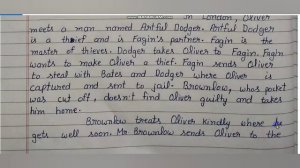 in London, Oliver
meets a man named Artful Dodger. Artful Dodger
is a thief and is Fagin's partner. Fagin is the
master of thieves. Dodger takes Oliver to Fagin. Fagin
wants to make Oliver a thief. Fagin sends Oliver
to steal with Bates and Dodger where Oliver is
captured and sent to jail. Brownlow, whos pocket
was cut off, doesn't find Oliver guilty and takes
him home.
Brownlow treats Oliver kindly where he
gets well soon. Mr Brownlow sends Oliver to the